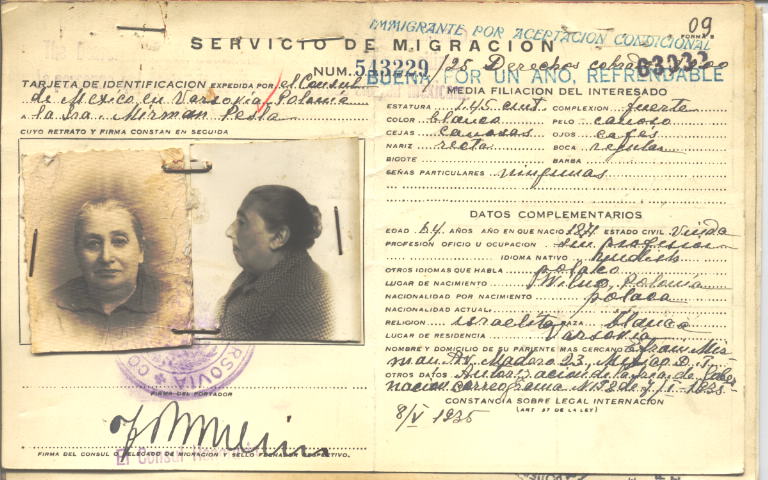 09
FORMA 5
IMMIGRANTE POR ACEPTACION CONDICIONAL
SERVICIO DE MIGRACION
NUM. 543229 /25 Derechos
63032
BUENA POR UN AÑO, REFRENDABLE
TARJETA DE IDENTIFICACION EXPEDIDA POR el Consul
de Mexico en Varsovia, Polonia
A la Sra. Mirman Pesla
CUYO RETRATO Y FIRMA CONSTAN EN SEGUIDA
FIRMA DEL PORTADOR
FIRMA DEL CONSUL O DELEGADO DE MIGRACION Y SELLO FECHADOR RESPECTIVO.
El Consul
MEDIA FILIACION DEL INTERESADO
ESTATURA 1.45 cmt. COMPLEXION fuerte
COLOR blanco PELO canoso
CEJAS canosas OJOS cafés
NARIZ recta BOCA regular
BIGOTE BARBA
SEÑAS PARTICULARES ningunas
DATOS COMPLEMENTARIOS
EDAD 64 AÑOS AÑO EN QUE NACIO 1871 ESTADO CIVIL Viuda
PROFESION OFICIO U OCUPACION sin profesion
IDIOMA NATIVO Yudish
OTROS IDIOMAS QUE HABLA polaco
LUGAR DE NACIMIENTO Wilno, Polonia
NACIONALIDAD POR NACIMIENTO polaca
NACIONALIDAD ACTUAL
RELIGION israelita RAZA blanca
LUGAR DE RESIDENCIA Varsovia
NOMBRE Y DOMICILIO DE SU PARIENTE MAS CERCANO Mir
man Av. Madero 23, Mexico D. F.
OTROS DATOS Autorizacion de la Sria. de Gober
nacion correograma N 152 de 7/II-1935
CONSTANCIA SOBRE LEGAL INTERNACION
(ART 37 DE LA LEY)
8/V 1935